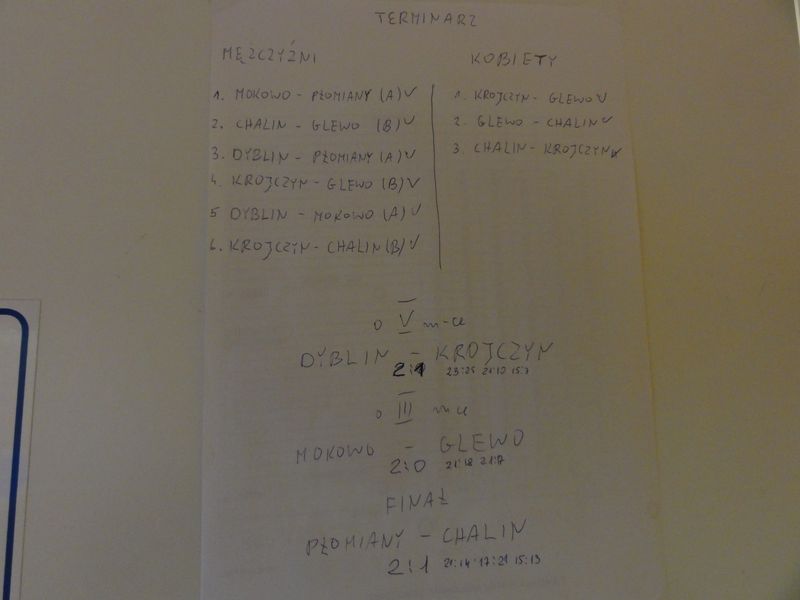 TERMINARZ
MĘŻCZYŹNI
1. MOKOWO - PŁOMIANY (A) ✓
2. CHALIN - GLEWO (B) ✓
3. DYBLIN - PŁOMIANY (A) ✓
4. KROJCZYN - GLEWO (B) ✓
5 DYBLIN - MOKOWO (A) ✓
6. KROJCZYN - CHALIN (B) ✓
KOBIETY
1. KROJCZYN - GLEWO ✓
2. GLEWO - CHALIN ✓
3. CHALIN - KROJCZYN ✓
O V m-ce
DYBLIN - KROJCZYN
2:1 23:25 21:19 15:7
O III m-ce
MOKOWO - GLEWO
2:0 21:18 21:7
FINAŁ
PŁOMIANY - CHALIN
2:1 21:14 17:21 15:13